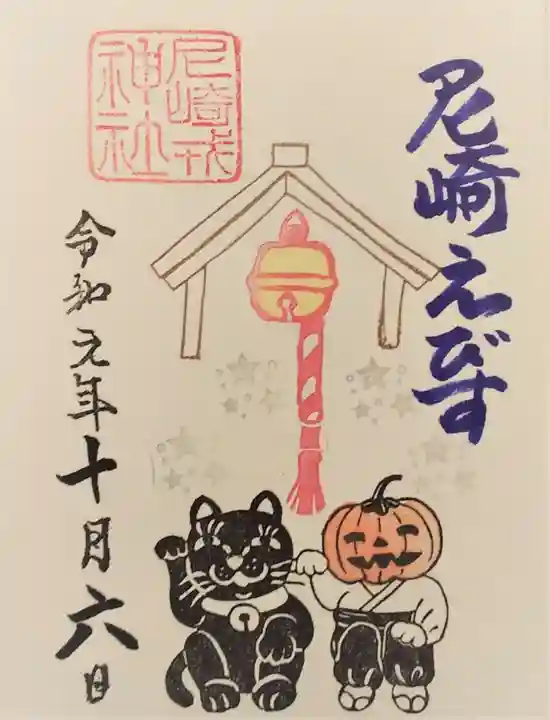 尼崎えびす
尼崎戎
神社
令和元年十月六日